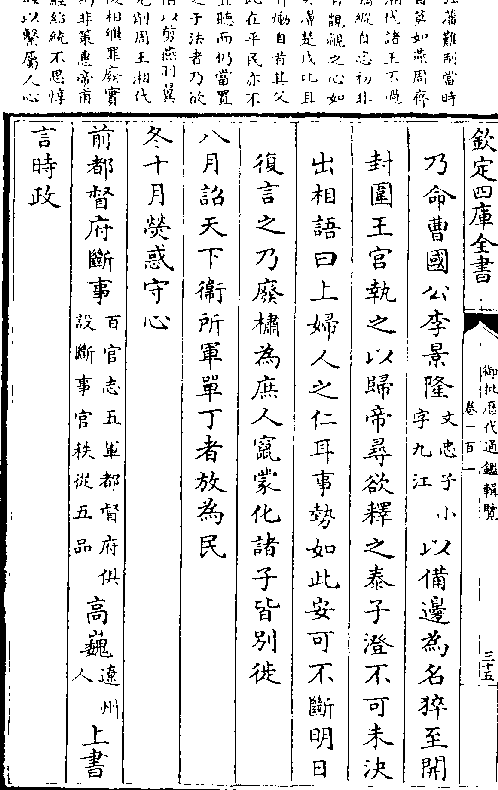 藩難制當時
莫如燕周齊
湘代諸王不過
驕縱自恣初非
有覬覦之心如
漢吳楚戊比且
自首其父
此在平民亦不
宜聽而仍當置
之于法者乃欲
借以剪燕羽翼
先削周王湘代
後相繼罪廢實
非策惠帝甫
經紹統不思惇
以繫屬人心
欽定四庫全書
御批歷代通鑑輯覽
卷一百一
三十五
乃命曹國公李景隆文忠子小字九江以備邊為名猝至開
封圍王宮執之以歸帝尋欲釋之泰子澄不可未決
出相語曰上婦人之仁耳事勢如此安可不斷明日
復言之乃廢橚為庶人竄蒙化諸子皆別徙
八月詔天下衛所軍單丁者放為民
冬十月熒惑守心
前都督府斷事百官志五軍都督府俱設斷事官秩從五品高巍遼州人上書
言時政